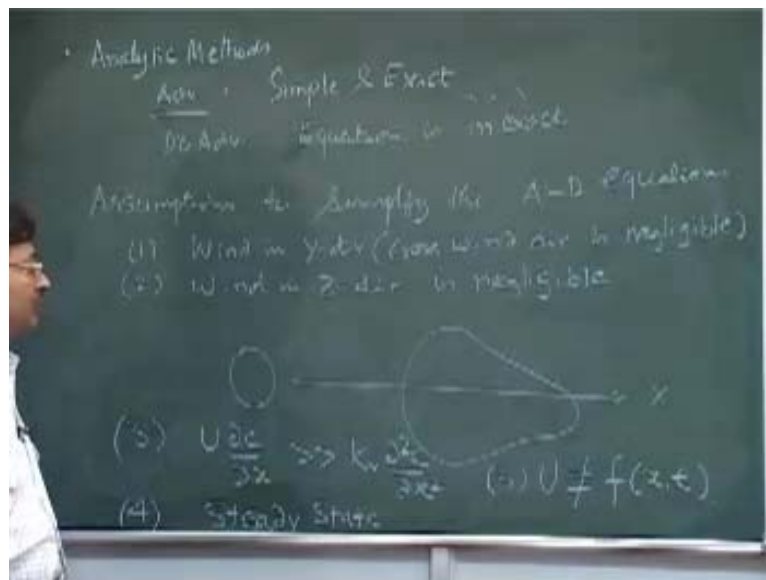 • Analytic Methods
Adv. Simple & Exact
DisAdv. Equation is inexact
Assumptions to Simplify the A-D equation
(1) Wind in Y-dir (cross wind dir is negligible)
(2) Wind in Z-dir is negligible
x
(3) U ∂c/∂x >> Kx ∂²c/∂x² U ≠ f(z,t)
(4) Steady State